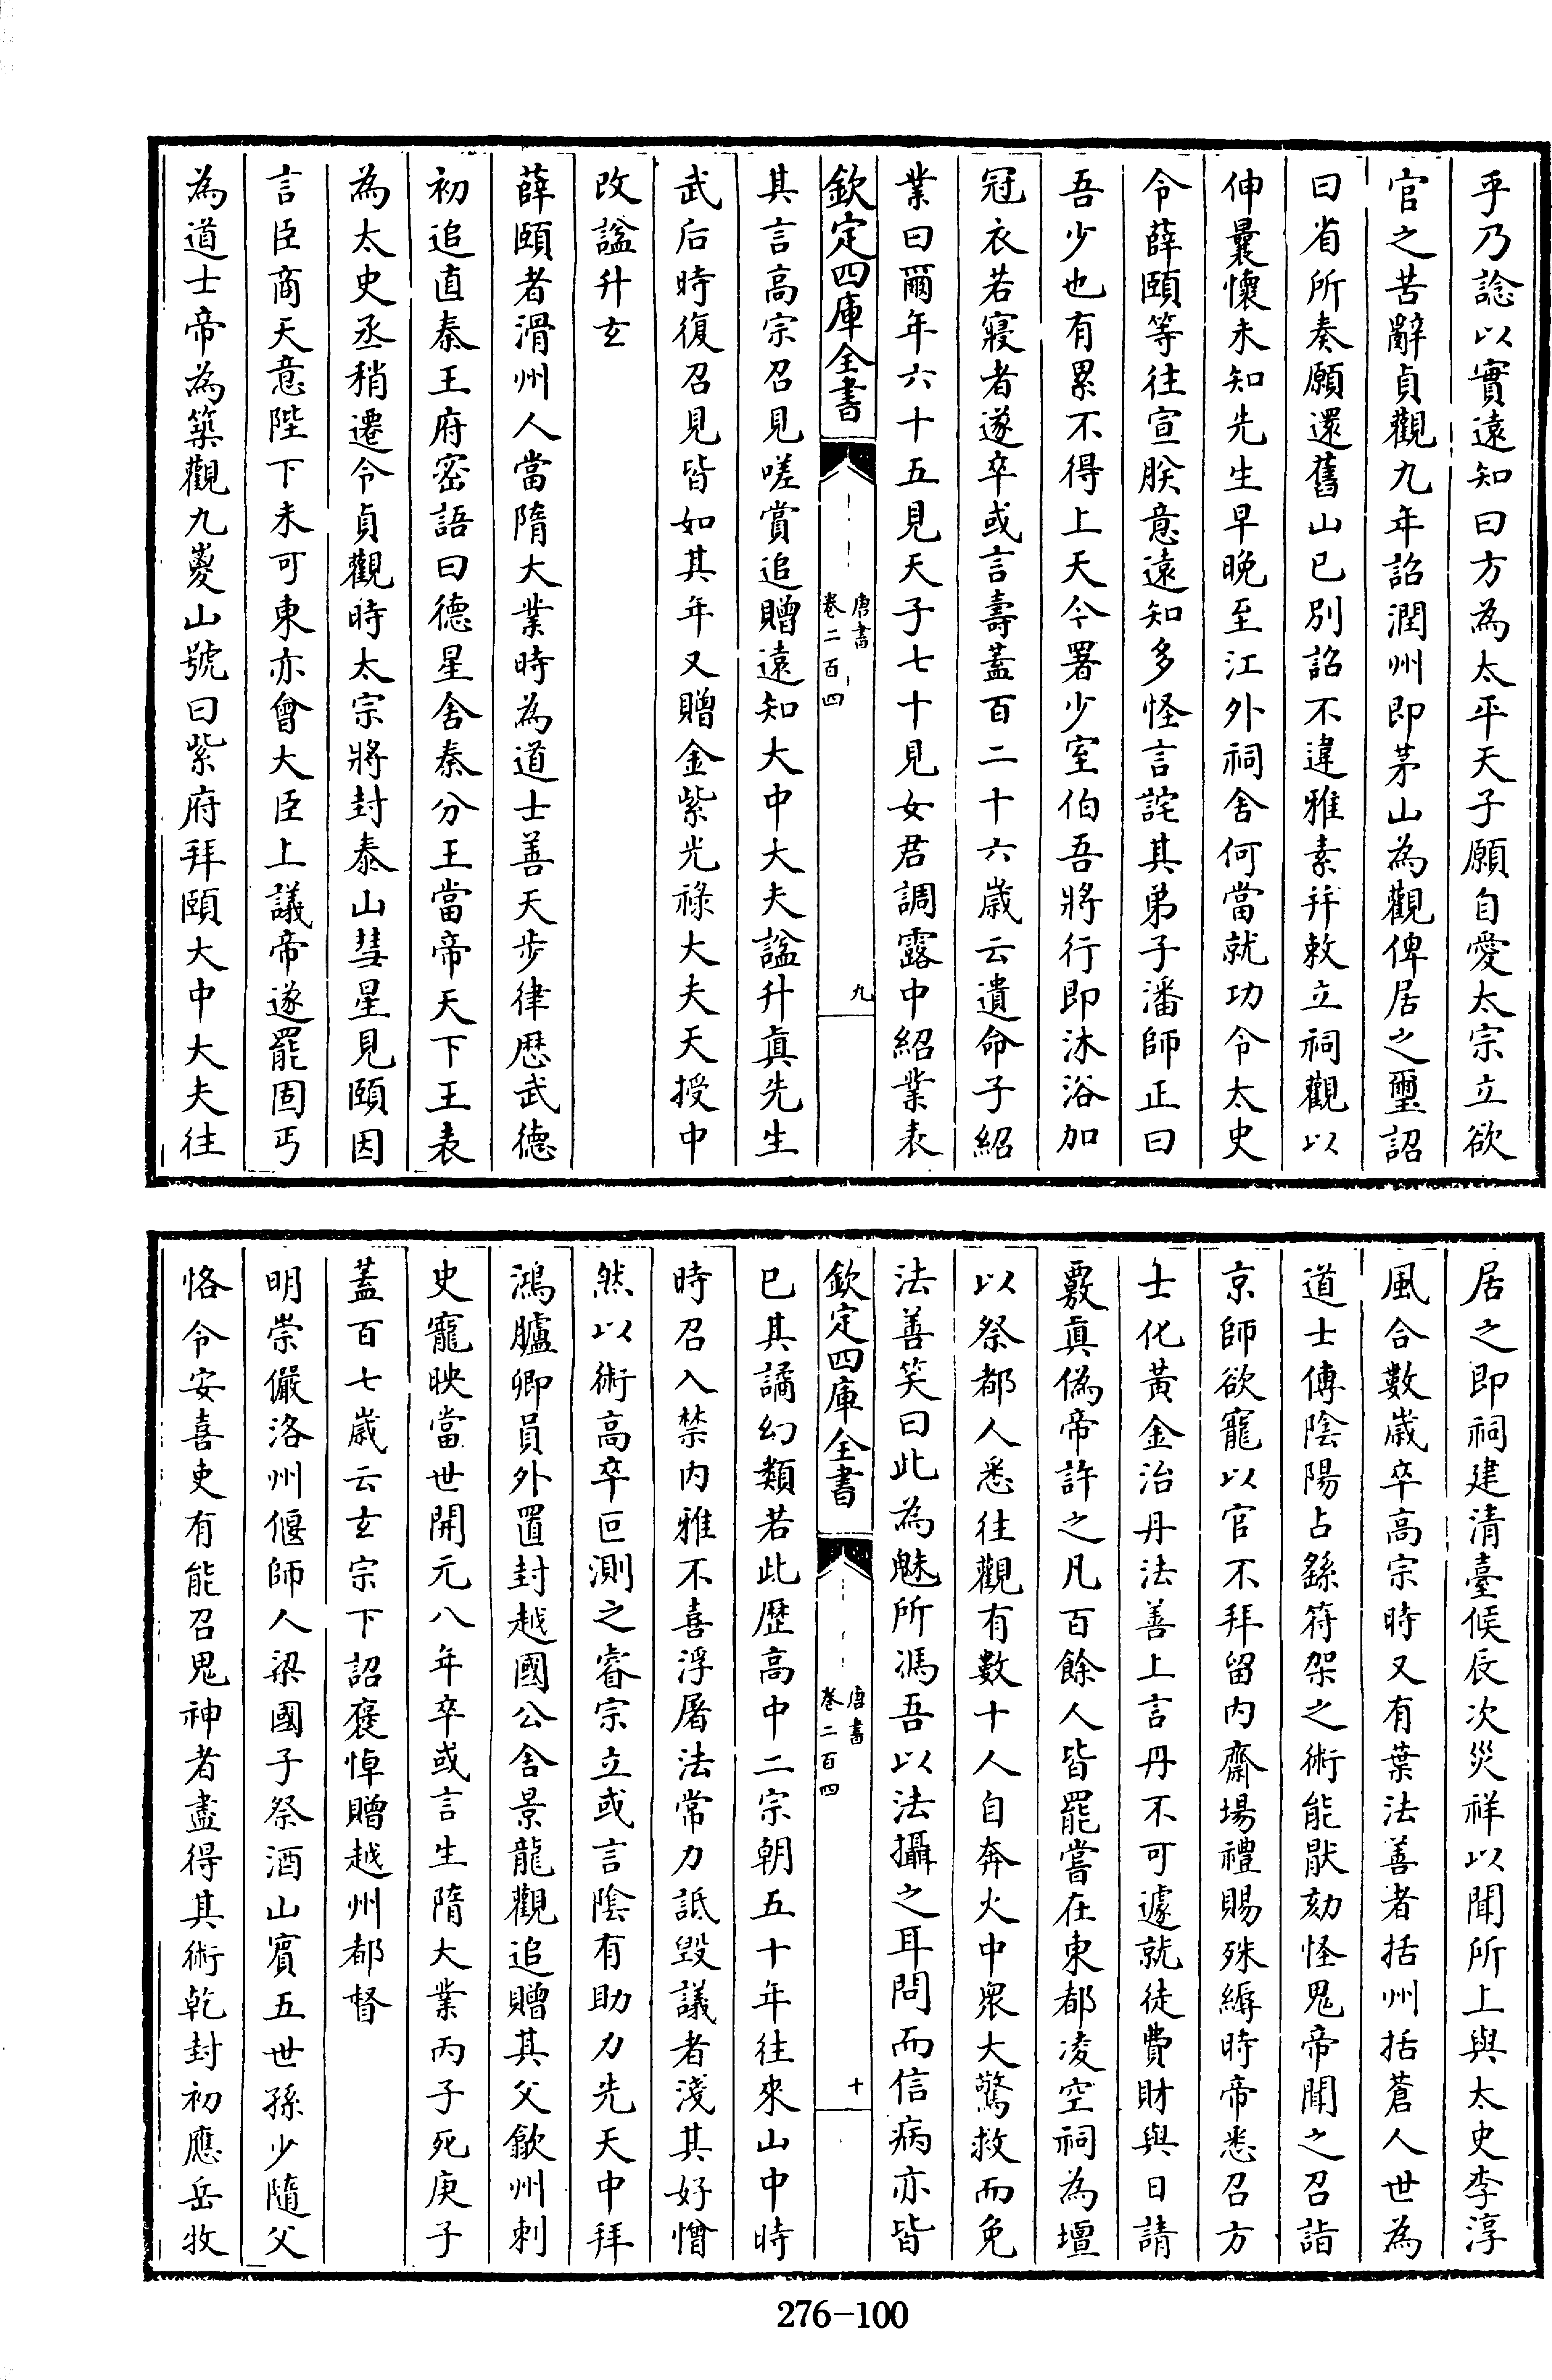 乎乃諗以實遠知曰方為太平天子願自愛太宗立欲
官之苦辭貞觀九年詔潤州即茅山為觀俾居之璽詔
曰省所奏願還舊山已別詔不違雅素并敕立祠觀以
伸曩懷未知先生早晚至江外祠舍何當就功令太史
令薛頤等往宣朕意遠知多怪言詫其弟子潘師正曰
吾少也有累不得上天今署少室伯吾將行即沐浴加
冠衣若寢者遂卒或言壽蓋百二十六歲云遺命子紹
業曰爾年六十五見天子七十見女君調露中紹業表
欽定四庫全書
唐書
卷二百四
九
其言高宗召見嗟賞追贈遠知大中大夫諡升真先生
武后時復召見皆如其年又贈金紫光祿大夫天授中
改諡升玄
薛頤者滑州人當隋大業時為道士善天步律歷武德
初追直秦王府密語曰德星舍秦分王當帝天下王表
為太史丞稍遷令貞觀時太宗將封泰山彗星見頤因
言臣商天意陛下未可東亦會大臣上議帝遂罷固丐
為道士帝為築觀九嵏山號曰紫府拜頤大中大夫往
居之即祠建清臺候辰次災祥以聞所上與太史李淳
風合數歲卒高宗時又有葉法善者括州括蒼人世為
道士傳陰陽占繇符架之術能厭劾怪鬼帝聞之召詣
京師欲寵以官不拜留內齋場禮賜殊縟時帝悉召方
士化黃金治丹法善上言丹不可遽就徒費財與日請
覈真偽帝許之凡百餘人皆罷嘗在東都凌空祠為壇
以祭都人悉往觀有數十人自奔火中眾大驚救而免
法善笑曰此為魅所馮吾以法攝之耳問而信病亦皆
欽定四庫全書
唐書
卷二百四
十
已其譎幻類若此歷高中二宗朝五十年往來山中時
時召入禁內雅不喜浮屠法常力詆毀議者淺其好憎
然以術高卒叵測之睿宗立或言陰有助力先天中拜
鴻臚卿員外置封越國公舍景龍觀追贈其父歙州刺
史寵映當世開元八年卒或言生隋大業丙子死庚子
蓋百七歲云玄宗下詔褒悼贈越州都督
明崇儼洛州偃師人梁國子祭酒山賓五世孫少隨父
恪令安喜吏有能召鬼神者盡得其術乾封初應岳牧
276-100